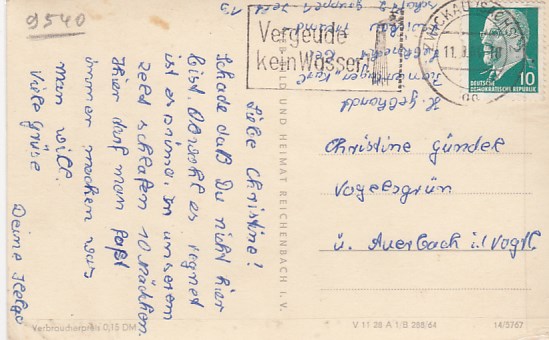 9540
Vergeude
kein Wasser!
ZWICKAU (SACHS)
11.
DEUTSCHE
DEMOKRATISCHE REPUBLIK
10
Liebe Christine!
Schade daß Du nicht hier
bist. Obwohl es regnet
ist es prima. In unserem
Zelt schlafen 10 Mädchen.
Hier darf man fast
immer machen was
man will.
Viele Grüße
Deine Helga
Christine Gündel
Vogelsgrün
ü. Auerbach i./Vogtl
BILD UND HEIMAT REICHENBACH I. V.
Verbraucherpreis 0,15 DM
V 11 28 A 1/B 288/64
14/3767